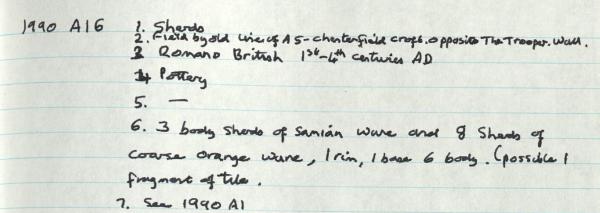 1990 A16 1. Sherds
2. Field by old line of A5 - chesterfield croft. opposite The Trooper. Wall.
3 Romano British 1st-4th centuries AD
4 Pottery
5. —
6. 3 body sherds of Samian ware and 8 Sherds of
coarse orange ware, 1 rim, 1 base 6 body. (possible 1
fragment of tile.
7. See 1990 A1